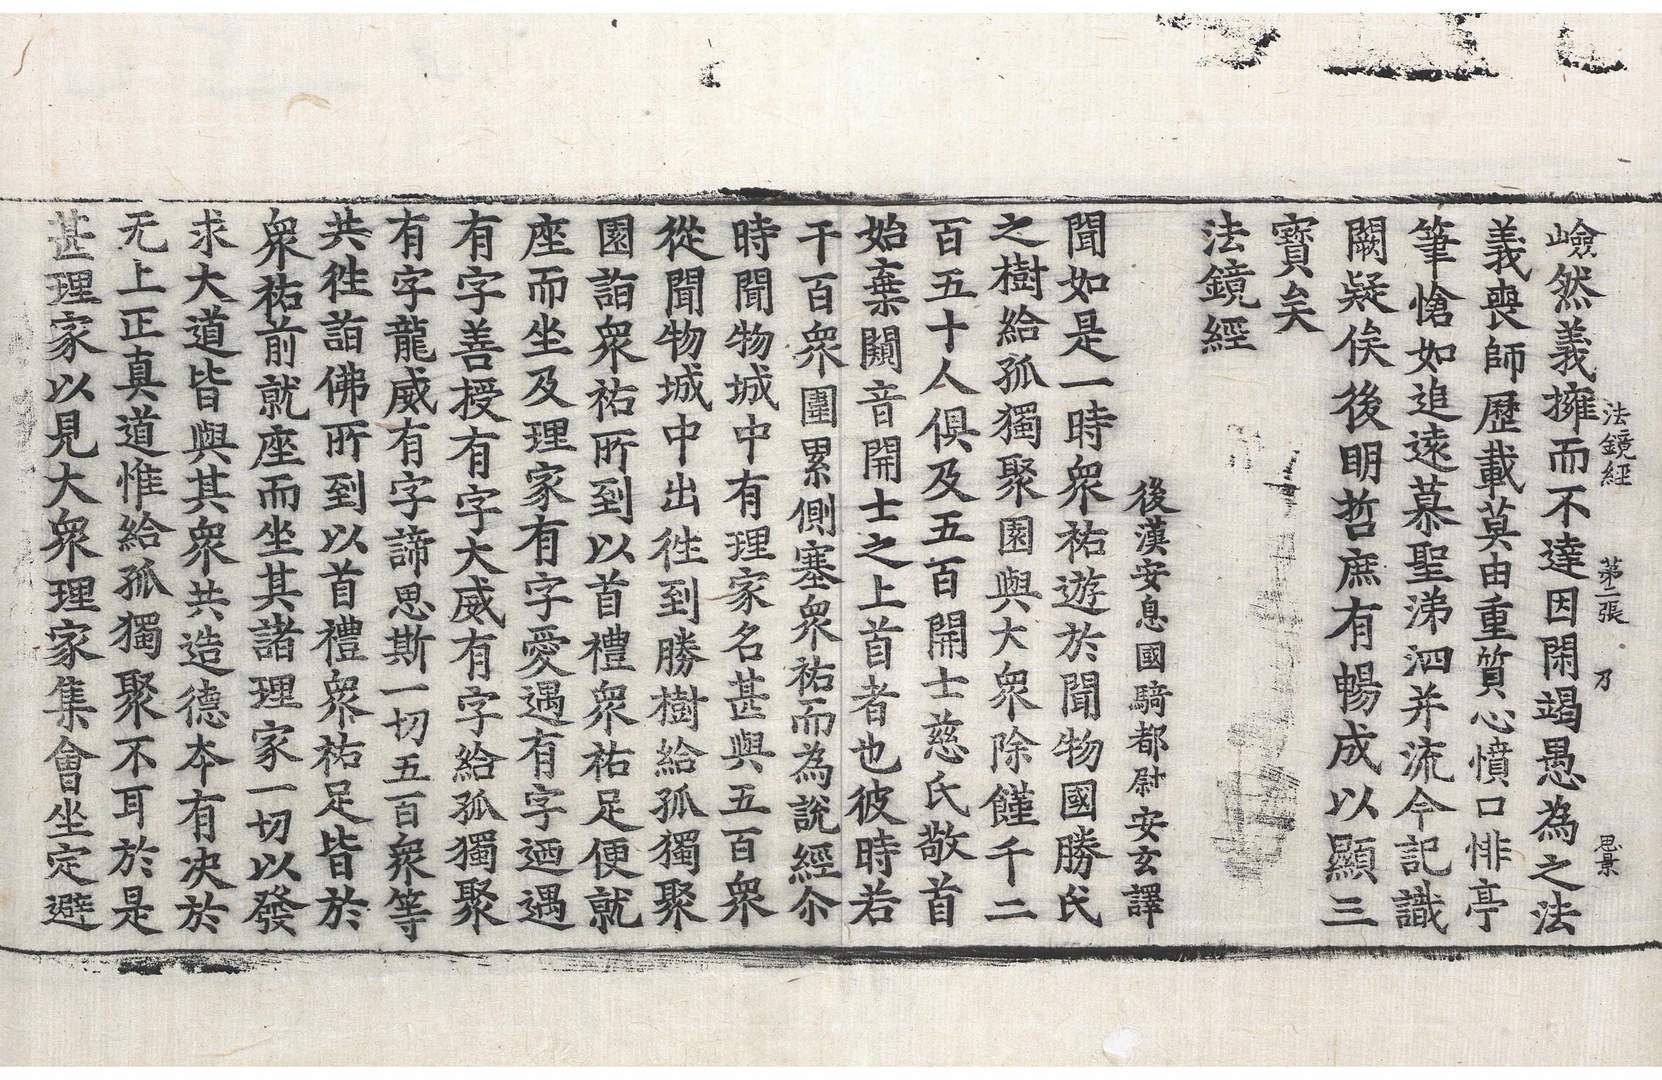 法鏡經 第二張 乃 思景
嶮然義擁而不達因閑竭愚為之法
義喪師歷載莫由重質心憤口悱亭
筆愴如追遠慕聖涕泗并流今記識
闕疑俟後明哲庶有暢成以顯三
寶矣
法鏡經
後漢安息國騎都尉安玄譯
聞如是一時衆祐遊於聞物國勝氏
之樹給孤獨聚園與大衆除饉千二
百五十人俱及五百開士慈氏敬首
始棄闚音開士之上首者也彼時若
干百衆圍累側塞衆祐而為說經尒
時聞物城中有理家名甚與五百衆
從聞物城中出徃到勝樹給孤獨聚
園詣衆祐所到以首禮衆祐足便就
座而坐及理家有字愛遇有字迺遇
有字善授有字大威有字給孤獨聚
有字龍威有字諦思斯一切五百衆等
共徃詣佛所到以首禮衆祐足皆於
衆祐前就座而坐其諸理家一切以發
求大道皆與其衆共造德夲有决於
无上正真道惟給孤獨聚不耳於是
甚理家以見大衆理家集會坐定避